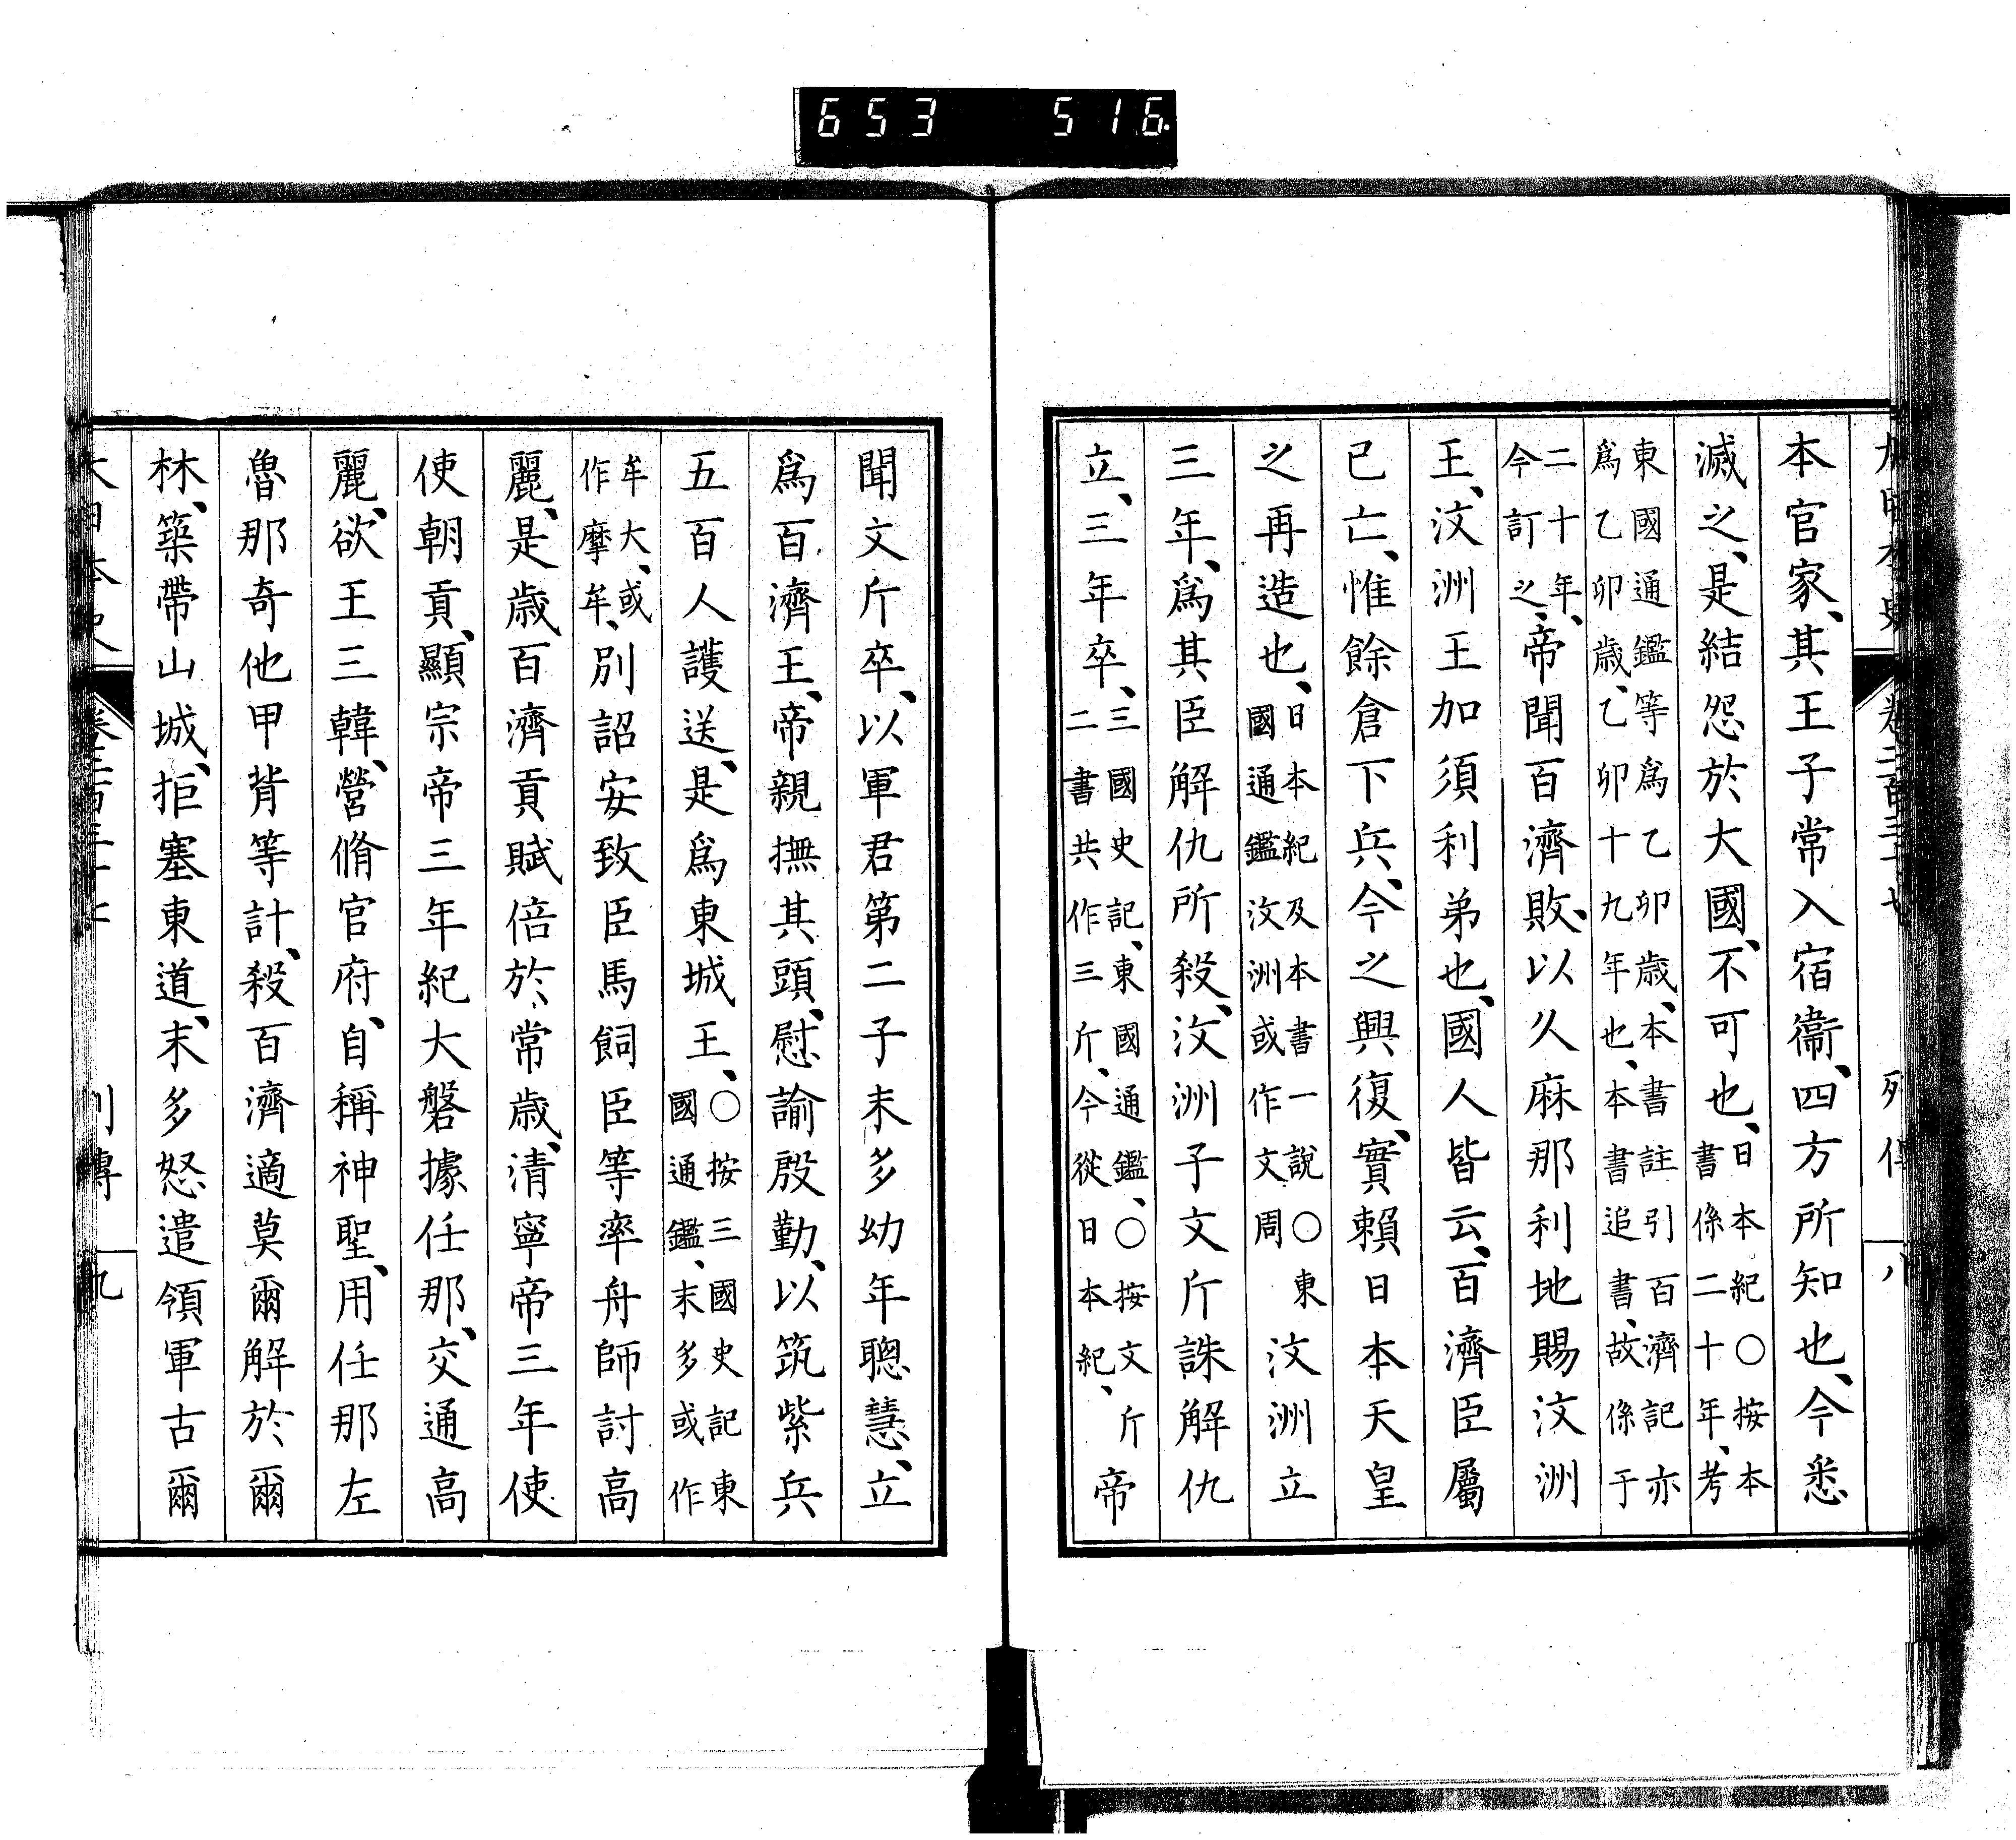 653 516
本官家、其王子常入宿衞、四方所知也、今悉
滅之、是結怨於大國、不可也、日本紀〇按本
書係二十年、考
東國通鑑等爲乙卯歳、本書註引百濟記亦
爲乙卯歳、乙卯十九年也、本書追書、故係于
二十年、
今訂之、帝聞百濟敗、以久麻那利地賜汶洲
王、汶洲王加須利弟也、國人皆云、百濟臣屬
已亡、惟餘倉下兵、今之興復、實賴日本天皇
之再造也、日本紀及本書一說〇東
國通鑑汶洲或作文周汶洲立
三年、爲其臣解仇所殺、汶洲子文斤誅解仇
立、三年卒、三國史記、東國通鑑、〇按文斤
二書共作三斤、今從日本紀、帝
聞文斤卒、以軍君第二子末多幼年聰慧、立
爲百濟王、帝親撫其頭、慰諭殷勤、以筑紫兵
五百人護送、是爲東城王、〇按三國史記東
國通鑑、末多或作
牟大、或
作摩牟、別詔安致臣馬飼臣等率舟師討高
麗、是歳百濟貢賦倍於常歳、清寧帝三年使
使朝貢、顯宗帝三年紀大磐據任那、交通高
麗、欲王三韓、營脩官府、自稱神聖、用任那左
魯那奇他甲背等計、殺百濟適莫爾解於爾
林、築帶山城、拒塞東道、末多怒遣領軍古爾
大日本史 卷二百三十七 列傳 九